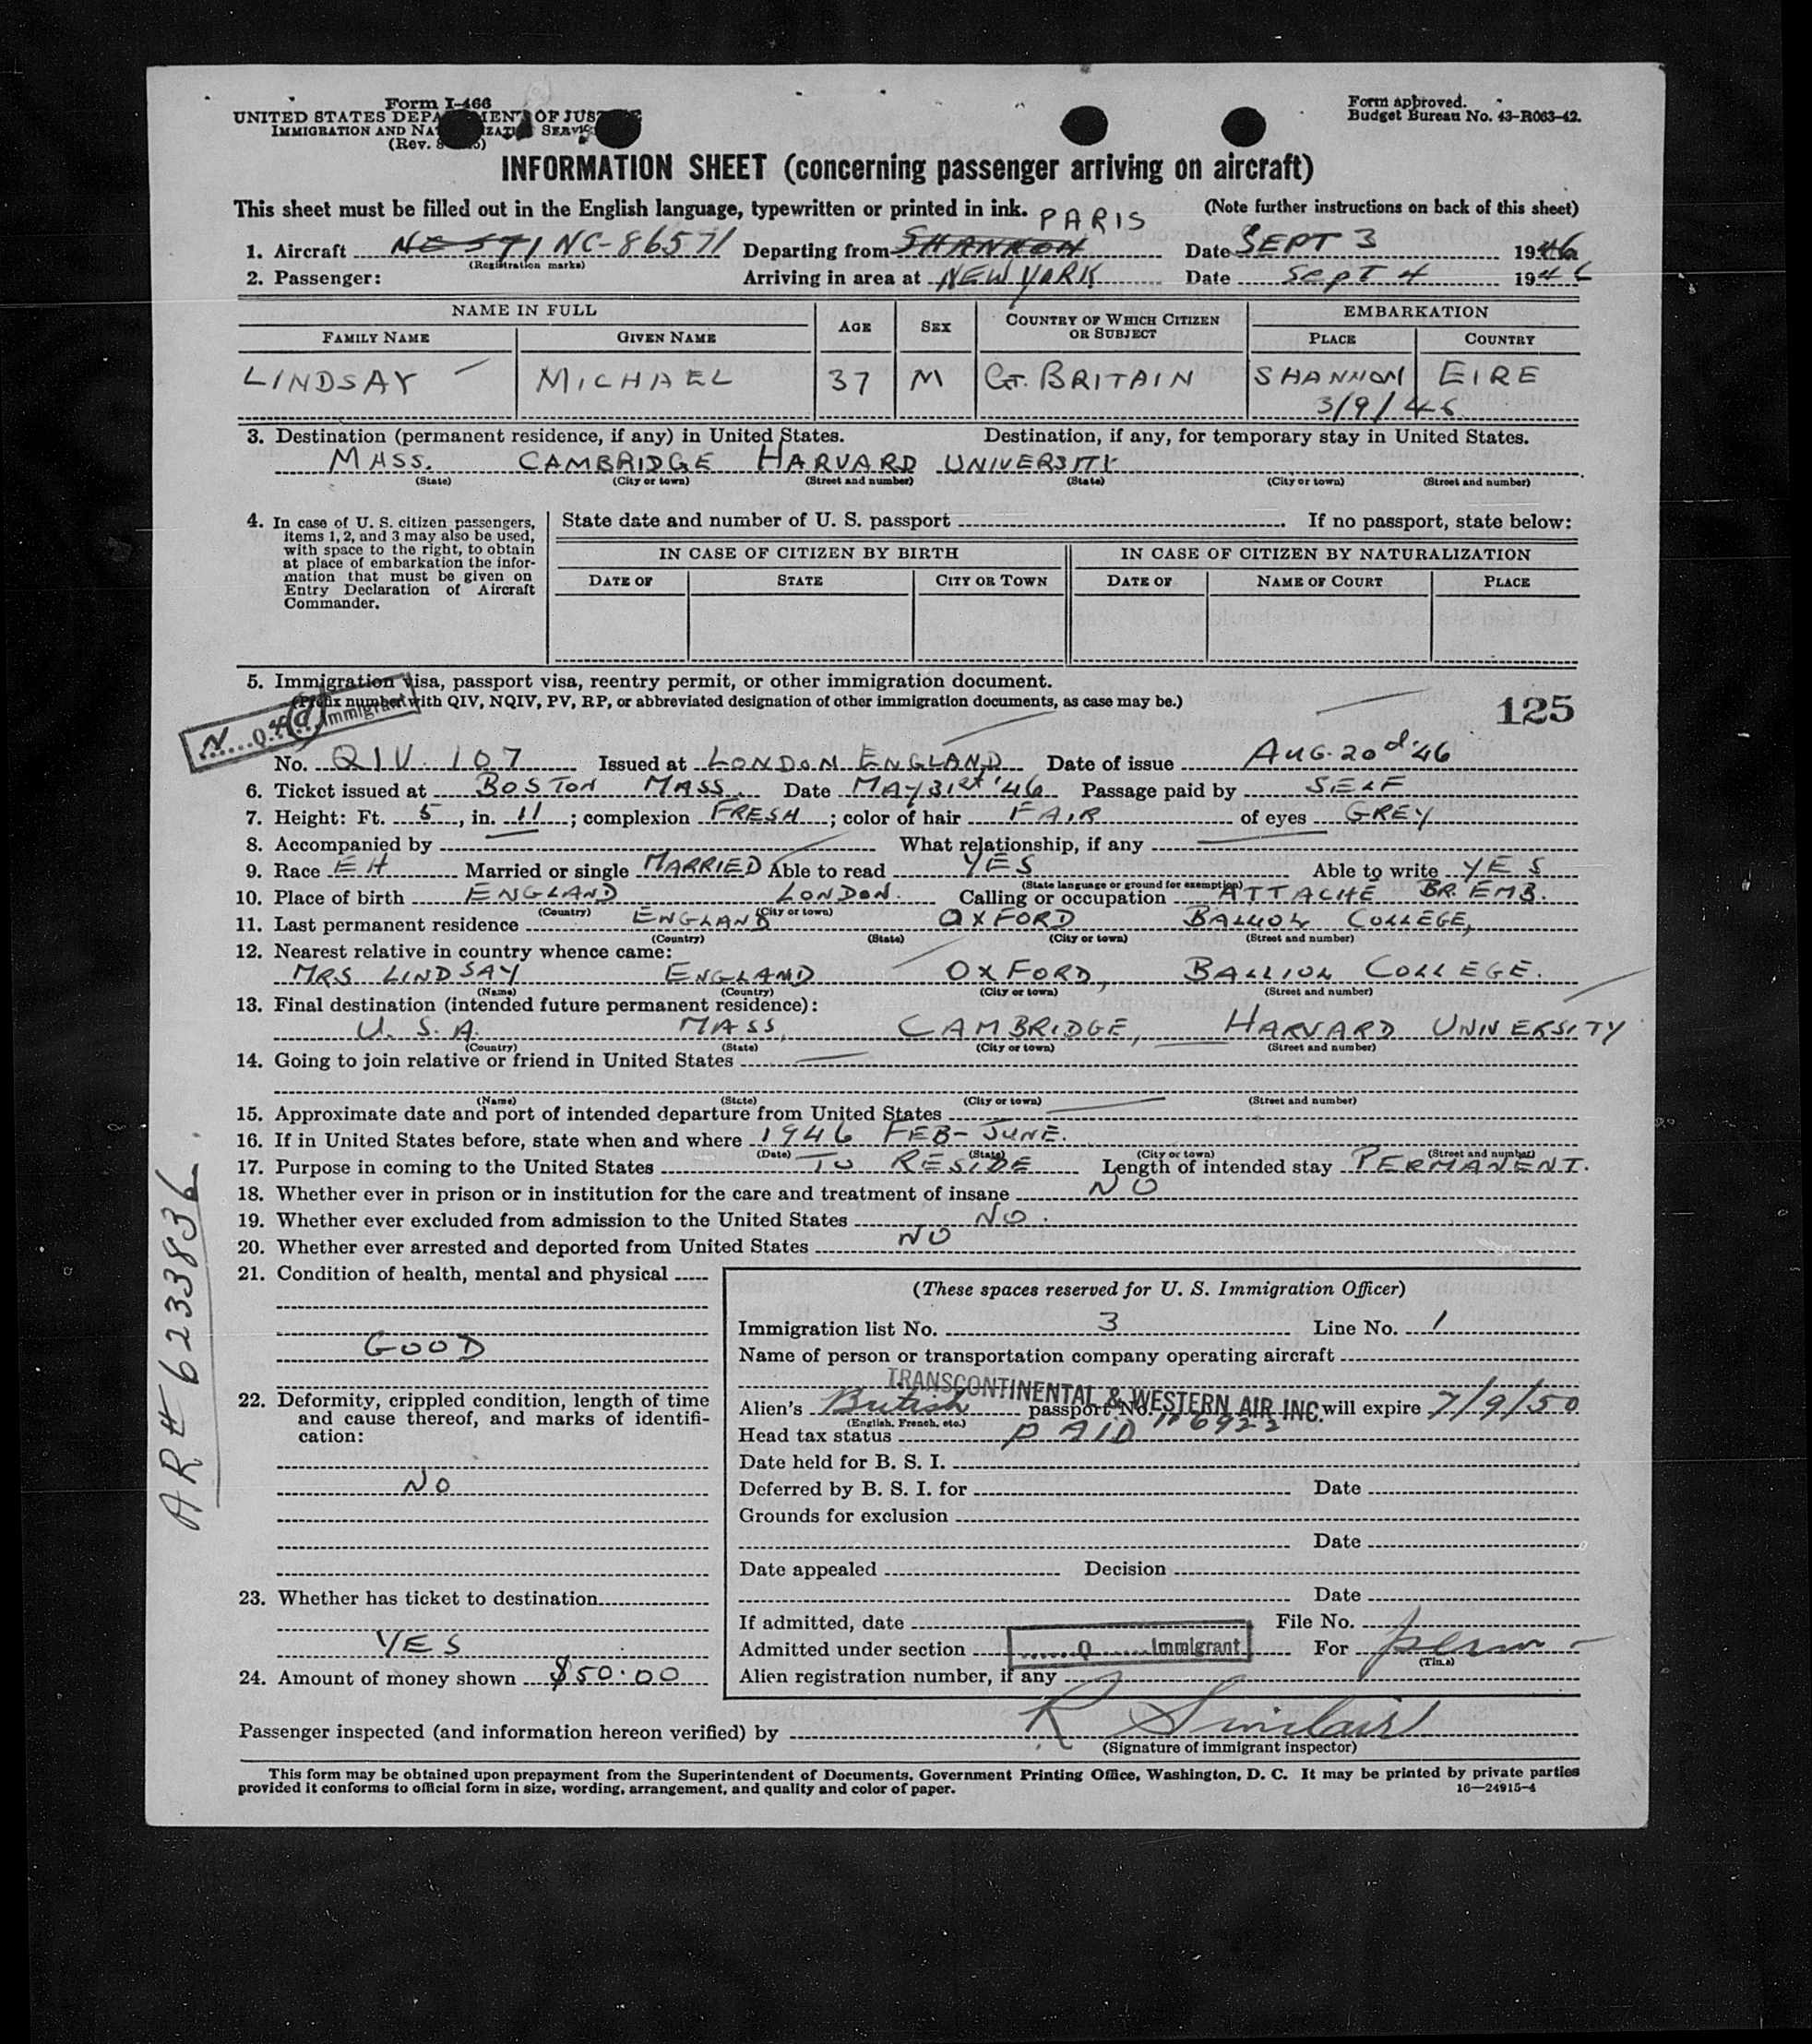 Form I-466
UNITED STATES DEPARTMENT OF JUSTICE
IMMIGRATION AND NATURALIZATION SERVICE
(Rev.
Form approved.
Budget Bureau No. 43-R063-42.
INFORMATION SHEET (concerning passenger arriving on aircraft)
This sheet must be filled out in the English language, typewritten or printed in ink. (Note further instructions on back of this sheet)
PARIS
1. Aircraft NC-86571 Departing from SHANNON Date SEPT 3 1946
(Registration marks)
2. Passenger: Arriving in area at NEW YORK Date SEPT 4 1946
NAME IN FULL AGE SEX COUNTRY OF WHICH CITIZEN OR SUBJECT EMBARKATION
FAMILY NAME GIVEN NAME PLACE COUNTRY
LINDSAY MICHAEL 37 M GT. BRITAIN SHANNON EIRE
3/9/46
3. Destination (permanent residence, if any) in United States. Destination, if any, for temporary stay in United States.
MASS. CAMBRIDGE HARVARD UNIVERSITY
(State) (City or town) (Street and number) (State) (City or town) (Street and number)
4. In case of U. S. citizen passengers,
items 1, 2, and 3 may also be used,
with space to the right, to obtain
at place of embarkation the infor-
mation that must be given on
Entry Declaration of Aircraft
Commander.
State date and number of U. S. passport If no passport, state below:
IN CASE OF CITIZEN BY BIRTH IN CASE OF CITIZEN BY NATURALIZATION
DATE OF STATE CITY OR TOWN DATE OF NAME OF COURT PLACE
5. Immigration visa, passport visa, reentry permit, or other immigration document.
(Prefix number with QIV, NQIV, PV, RP, or abbreviated designation of other immigration documents, as case may be.)
125
N Q Immigrant
No. QIV. 107 Issued at LONDON ENGLAND Date of issue AUG. 20d. '46
6. Ticket issued at BOSTON MASS. Date MAY 31st '46 Passage paid by SELF
7. Height: Ft. 5, in. 11; complexion FRESH; color of hair FAIR of eyes GREY
8. Accompanied by What relationship, if any
9. Race EH Married or single MARRIED Able to read YES Able to write YES
(State language or ground for exemption)
10. Place of birth ENGLAND LONDON. Calling or occupation ATTACHÉ BR. EMB.
(Country) (City or town)
11. Last permanent residence ENGLAND OXFORD BALLIOL COLLEGE,
(Country) (State) (City or town) (Street and number)
12. Nearest relative in country whence came:
MRS LINDSAY ENGLAND OXFORD, BALLIOL COLLEGE.
(Name) (Country) (City or town) (Street and number)
13. Final destination (intended future permanent residence):
U. S. A. MASS, CAMBRIDGE, HARVARD UNIVERSITY
(Country) (State) (City or town) (Street and number)
14. Going to join relative or friend in United States
(Name) (State) (City or town) (Street and number)
15. Approximate date and port of intended departure from United States
16. If in United States before, state when and where 1946 FEB-JUNE.
(Date) (State) (City or town) (Street and number)
17. Purpose in coming to the United States TO RESIDE Length of intended stay PERMANENT.
18. Whether ever in prison or in institution for the care and treatment of insane NO
19. Whether ever excluded from admission to the United States NO.
20. Whether ever arrested and deported from United States NO
21. Condition of health, mental and physical
GOOD
22. Deformity, crippled condition, length of time
and cause thereof, and marks of identifi-
cation:
NO
23. Whether has ticket to destination
YES
24. Amount of money shown $50.00
(These spaces reserved for U. S. Immigration Officer)
Immigration list No. 3 Line No. 1
Name of person or transportation company operating aircraft
TRANSCONTINENTAL & WESTERN AIR INC.
Alien's British passport No. will expire 7/9/50
(English, French, etc.)
Head tax status PAID
Date held for B. S. I.
Deferred by B. S. I. for Date
Grounds for exclusion
Date
Date appealed Decision
Date
If admitted, date File No.
Admitted under section Q Immigrant For perm
Alien registration number, if any
Passenger inspected (and information hereon verified) by R Sinclair
(Signature of immigrant inspector)
This form may be obtained upon prepayment from the Superintendent of Documents, Government Printing Office, Washington, D. C. It may be printed by private parties
provided it conforms to official form in size, wording, arrangement, and quality and color of paper.
16—24915-4
AR# 6233836